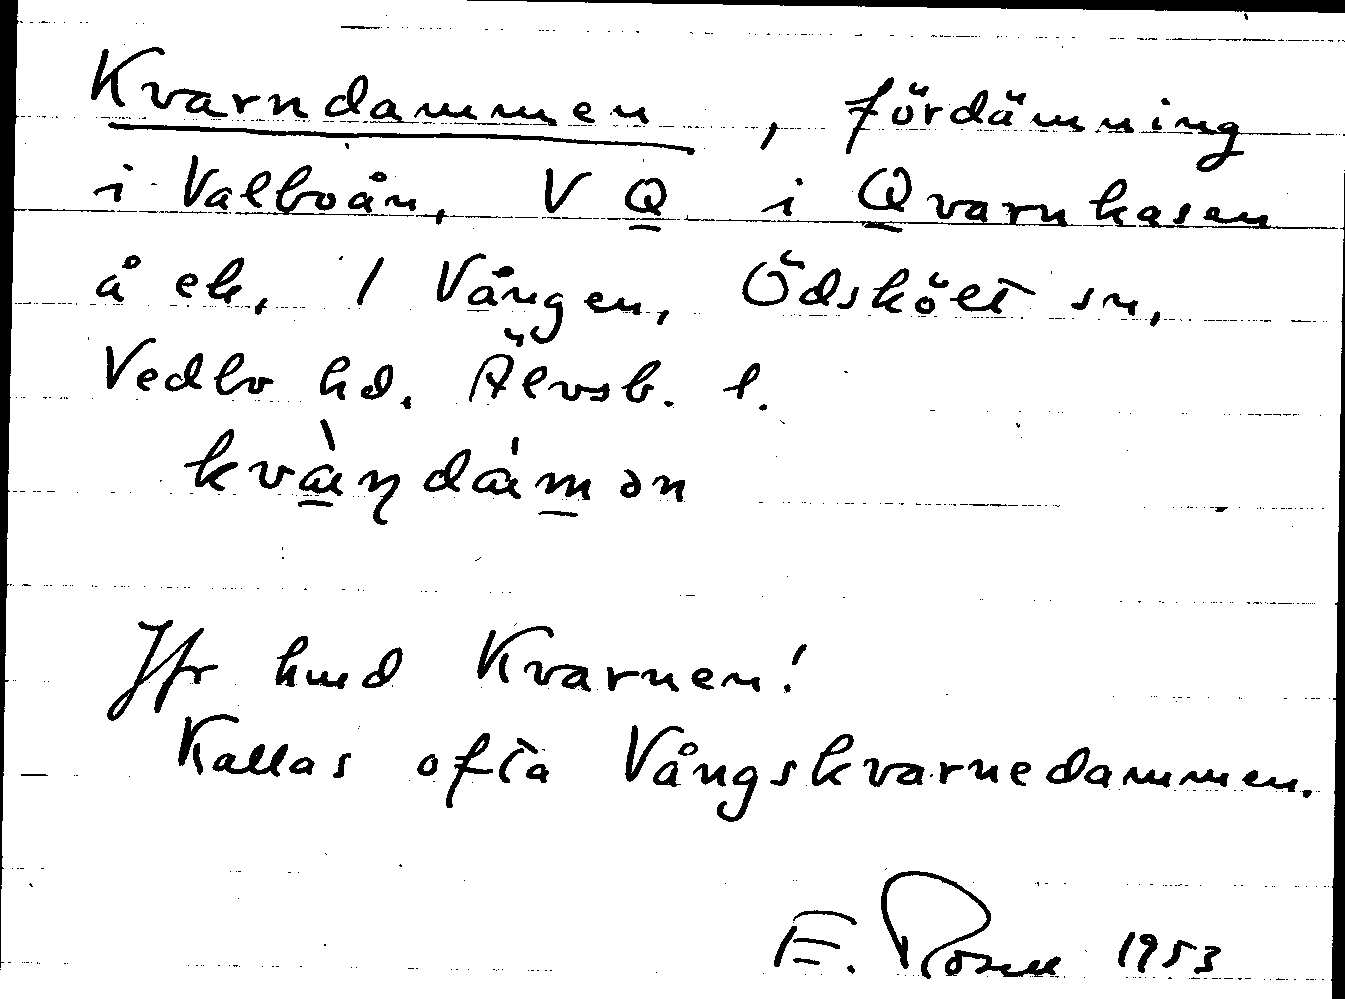 Kvarndammen, fördämning
i Valboån, V Q i Qvarnkasen
å ek, 1 Vången, Ödskölt sn,
Vedbo hd. Älvsb. l.
kvàɳdám ən
Jfr hmd Kvarnen!
Kallas ofta Vångskvarnedammen.
E. Rosell 1953